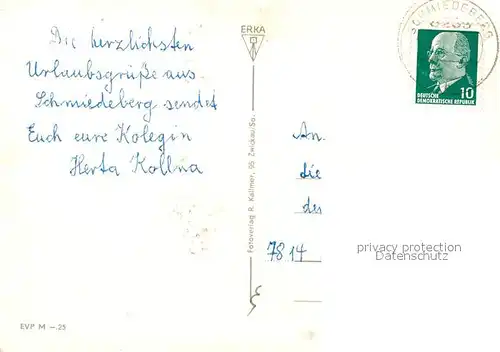 Die herzlichsten
Urlaubsgrüße aus
Schmiedeberg sendet
Euch eure Kolegin
Herta Kollna
EVP M -.25
ERKA
Fotoverlag R. Kallmer, 95 Zwickau/Sa.
SCHMIEDEBERG
DEUTSCHE
DEMOKRATISCHE REPUBLIK
10
An
die
der
7814
privacy protection
Datenschutz